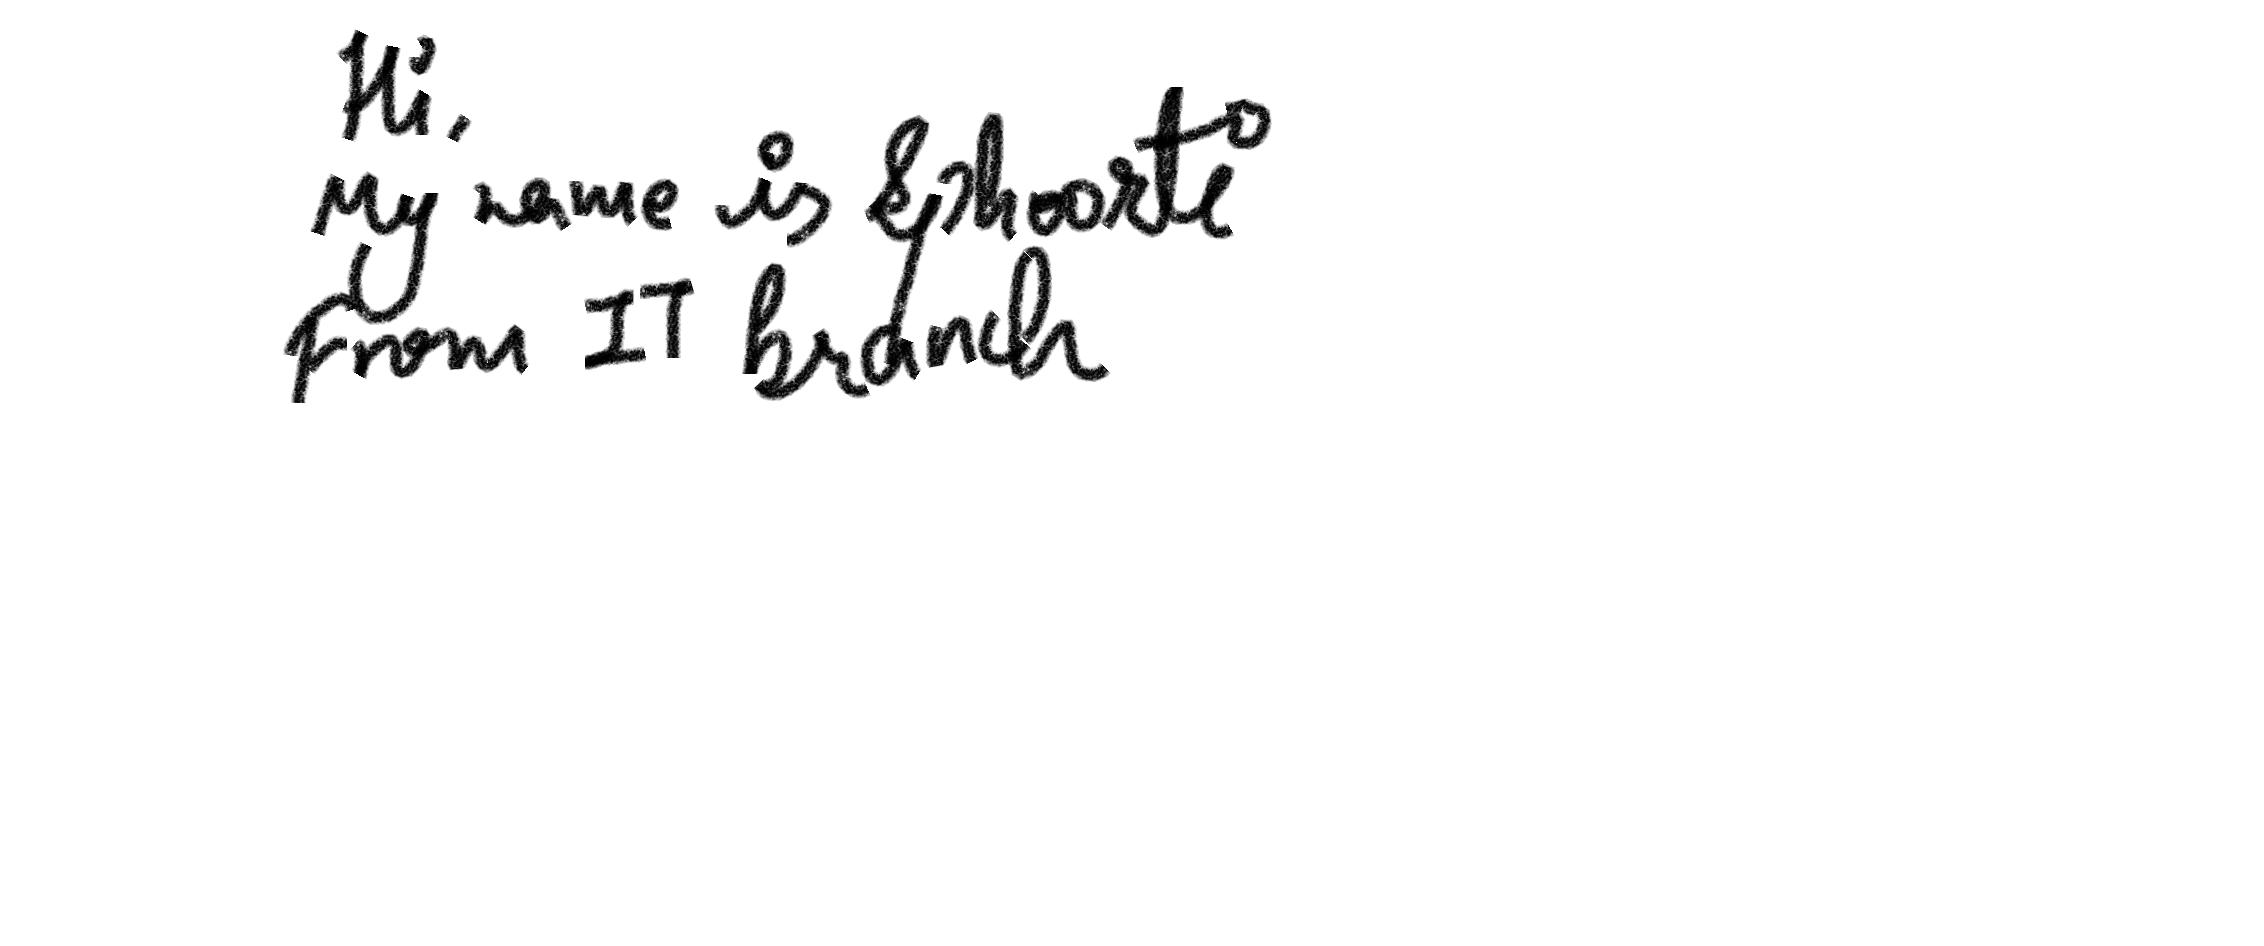 Hi,
My name is Sphoorti
from IT branch